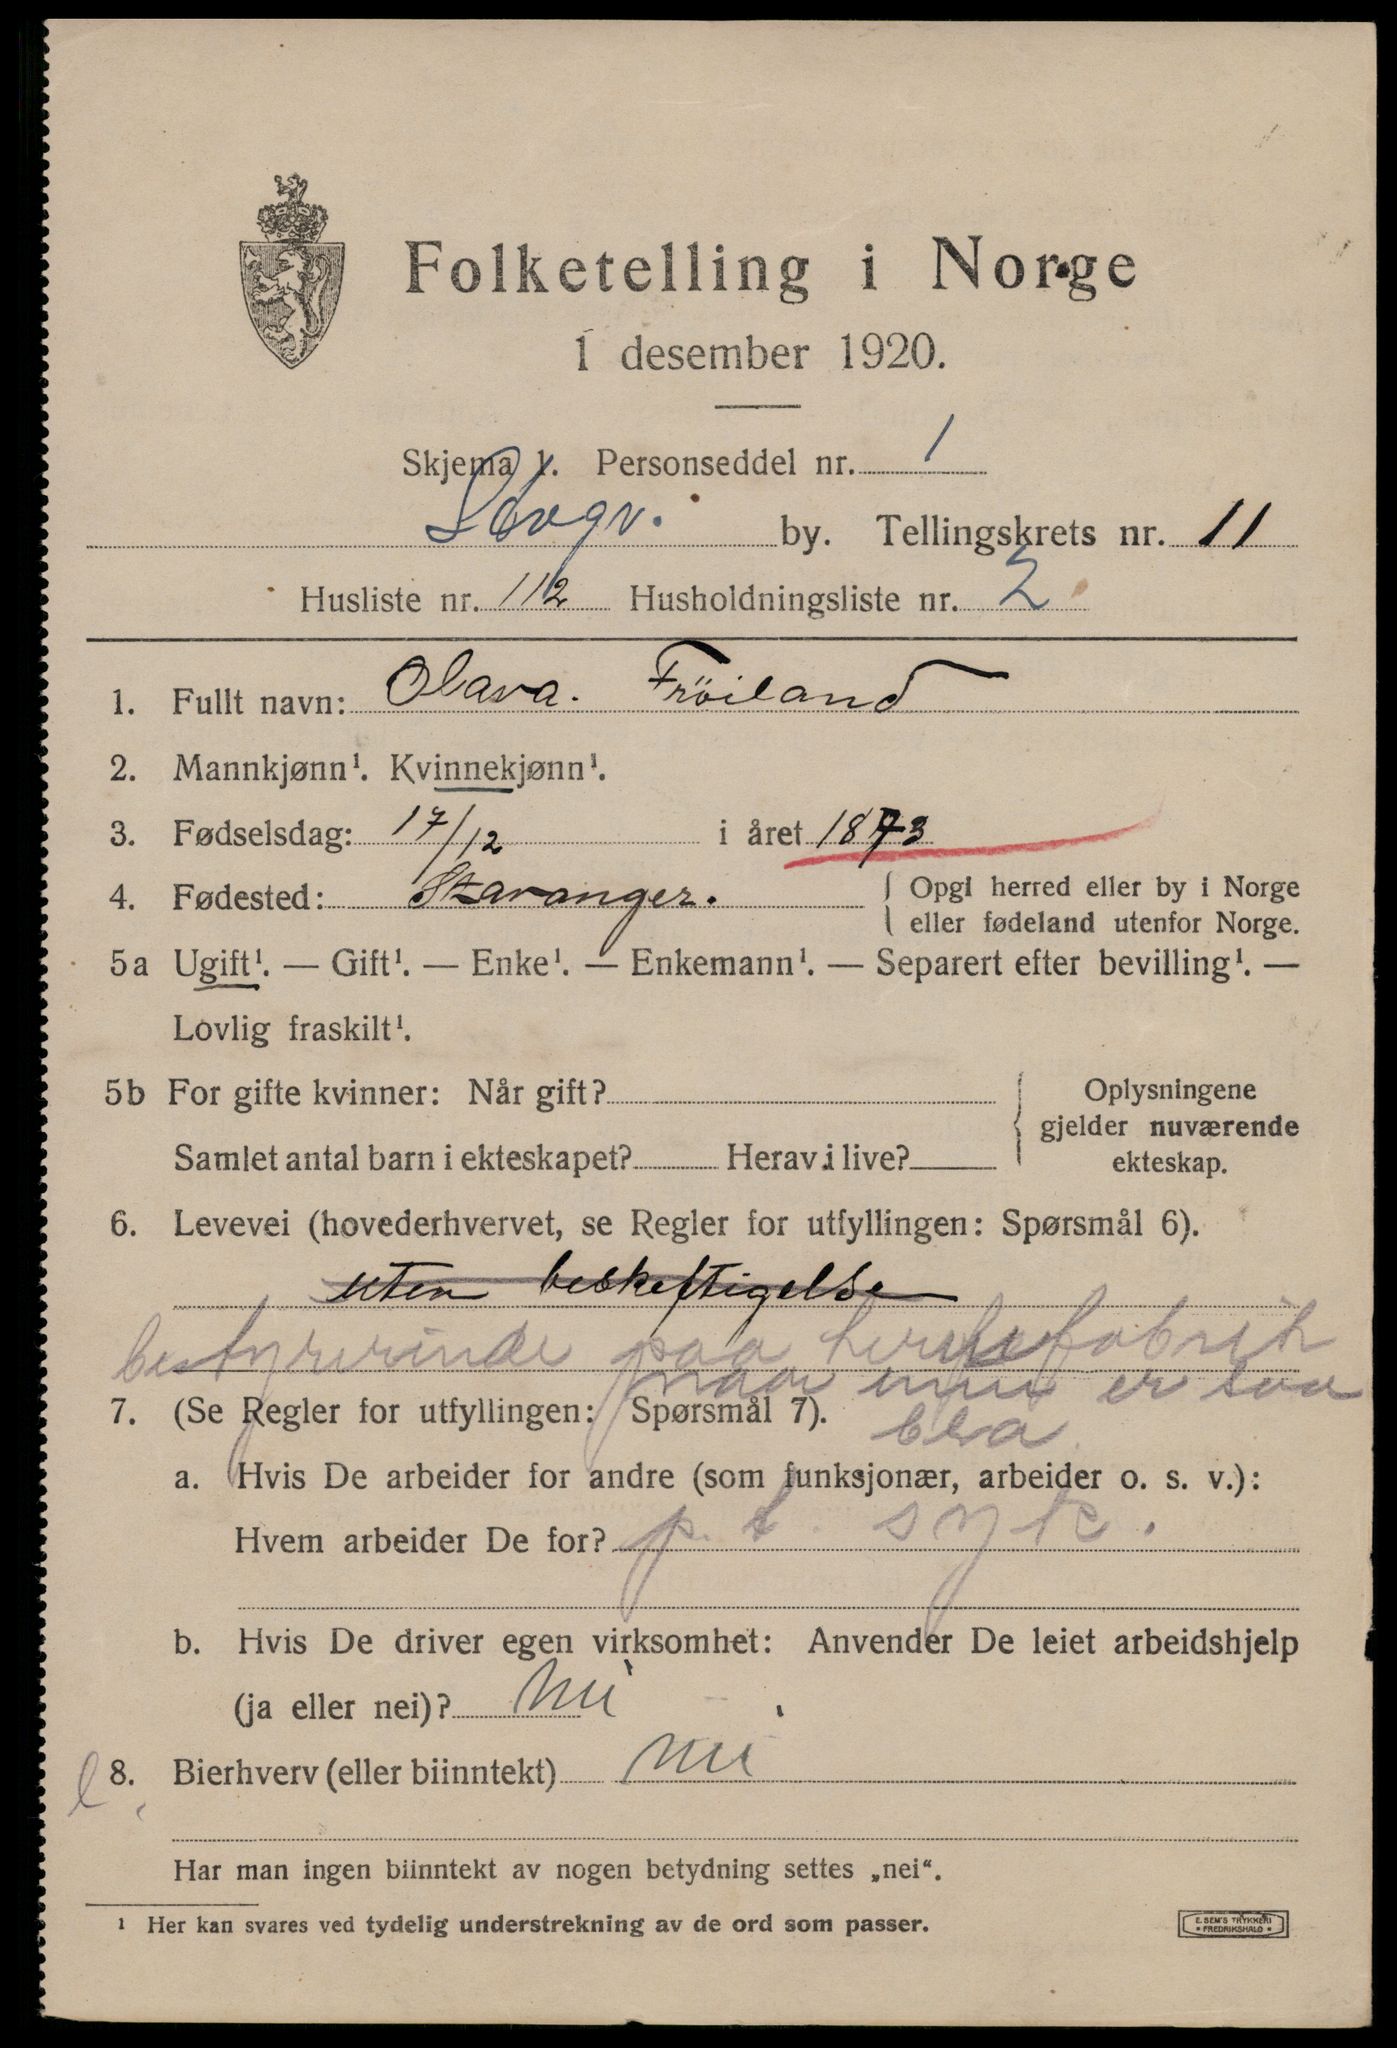 Folketelling i Norge
1 desember 1920.
Skjema 1. Personseddel nr. 1
by. Tellingskrets nr. 11
Husliste nr. 112 Husholdningsliste nr. 2
1. Fullt navn: Olava. Fröiland
2. Mannkjønn¹. Kvinnekjønn¹.
3. Fødselsdag: 17/12 i året 1873
4. Fødested: Stavanger. Opgi herred eller by i Norge
eller fødeland utenfor Norge.
5a Ugift¹. — Gift¹. — Enke¹. — Enkemann¹. — Separert efter bevilling¹. —
Lovlig fraskilt¹.
5b For gifte kvinner: Når gift? Oplysningene
gjelder nuværende
Samlet antal barn i ekteskapet? Herav i live? ekteskap.
6. Levevei (hovederhvervet, se Regler for utfyllingen: Spørsmål 6).
uten beskeftigelse
bestyrerinde paa fabrik
naar er saa
7. (Se Regler for utfyllingen: Spørsmål 7). bra
a. Hvis De arbeider for andre (som funksjonær, arbeider o. s. v.):
Hvem arbeider De for? p. t. syk.
b. Hvis De driver egen virksomhet: Anvender De leiet arbeidshjelp
(ja eller nei)? nei
8. Bierhverv (eller biinntekt) nei
Har man ingen biinntekt av nogen betydning settes „nei“.
¹ Her kan svares ved tydelig understrekning av de ord som passer.
E. SEM'S TRYKKERI
* FREDRIKSHALD *